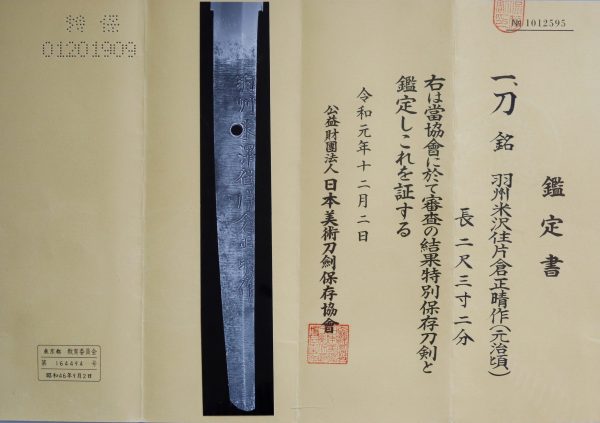 鑑定書
№ 1012595
一、刀 銘 羽州米沢住片倉正晴作(元治頃)
長 二尺三寸二分
右は當協會に於て審査の結果特別保存刀剣と
鑑定しこれを証する
令和元年十二月二日
公益財團法人 日本美術刀劍保存協會
特保
01201909
東京都 教育委員会
第 164494 号
昭和46年9月2日